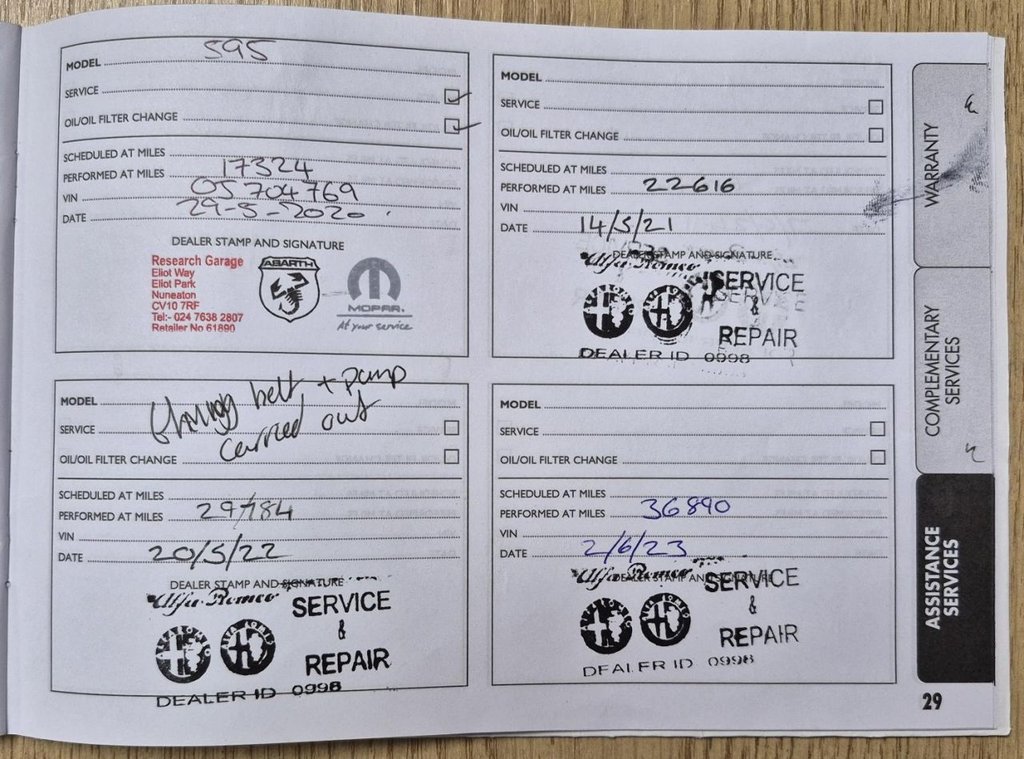 MODEL 595
SERVICE
OIL/OIL FILTER CHANGE
SCHEDULED AT MILES
PERFORMED AT MILES 17324
VIN 05704769
DATE 29-5-2020
DEALER STAMP AND SIGNATURE
Research Garage
Eliot Way
Eliot Park
Nuneaton
CV10 7RF
Tel:- 024 7638 2807
Retailer No 61890
ABARTH
MOPAR.
At your service
MODEL
SERVICE
OIL/OIL FILTER CHANGE
SCHEDULED AT MILES
PERFORMED AT MILES 22616
VIN
DATE 14/5/21
DEALER STAMP AND SIGNATURE
Alfa Romeo
SERVICE
&
REPAIR
DEALER ID 0998
MODEL
timing belt + pump
SERVICE
carried out
OIL/OIL FILTER CHANGE
SCHEDULED AT MILES
PERFORMED AT MILES 29784
VIN
DATE 20/5/22
DEALER STAMP AND SIGNATURE
Alfa Romeo
SERVICE
&
REPAIR
DEALER ID 0998
MODEL
SERVICE
OIL/OIL FILTER CHANGE
SCHEDULED AT MILES
PERFORMED AT MILES 36890
VIN
DATE 2/6/23
DEALER STAMP AND SIGNATURE
Alfa Romeo
SERVICE
&
REPAIR
DEALER ID 0998
WARRANTY
COMPLEMENTARY
SERVICES
ASSISTANCE
SERVICES
29